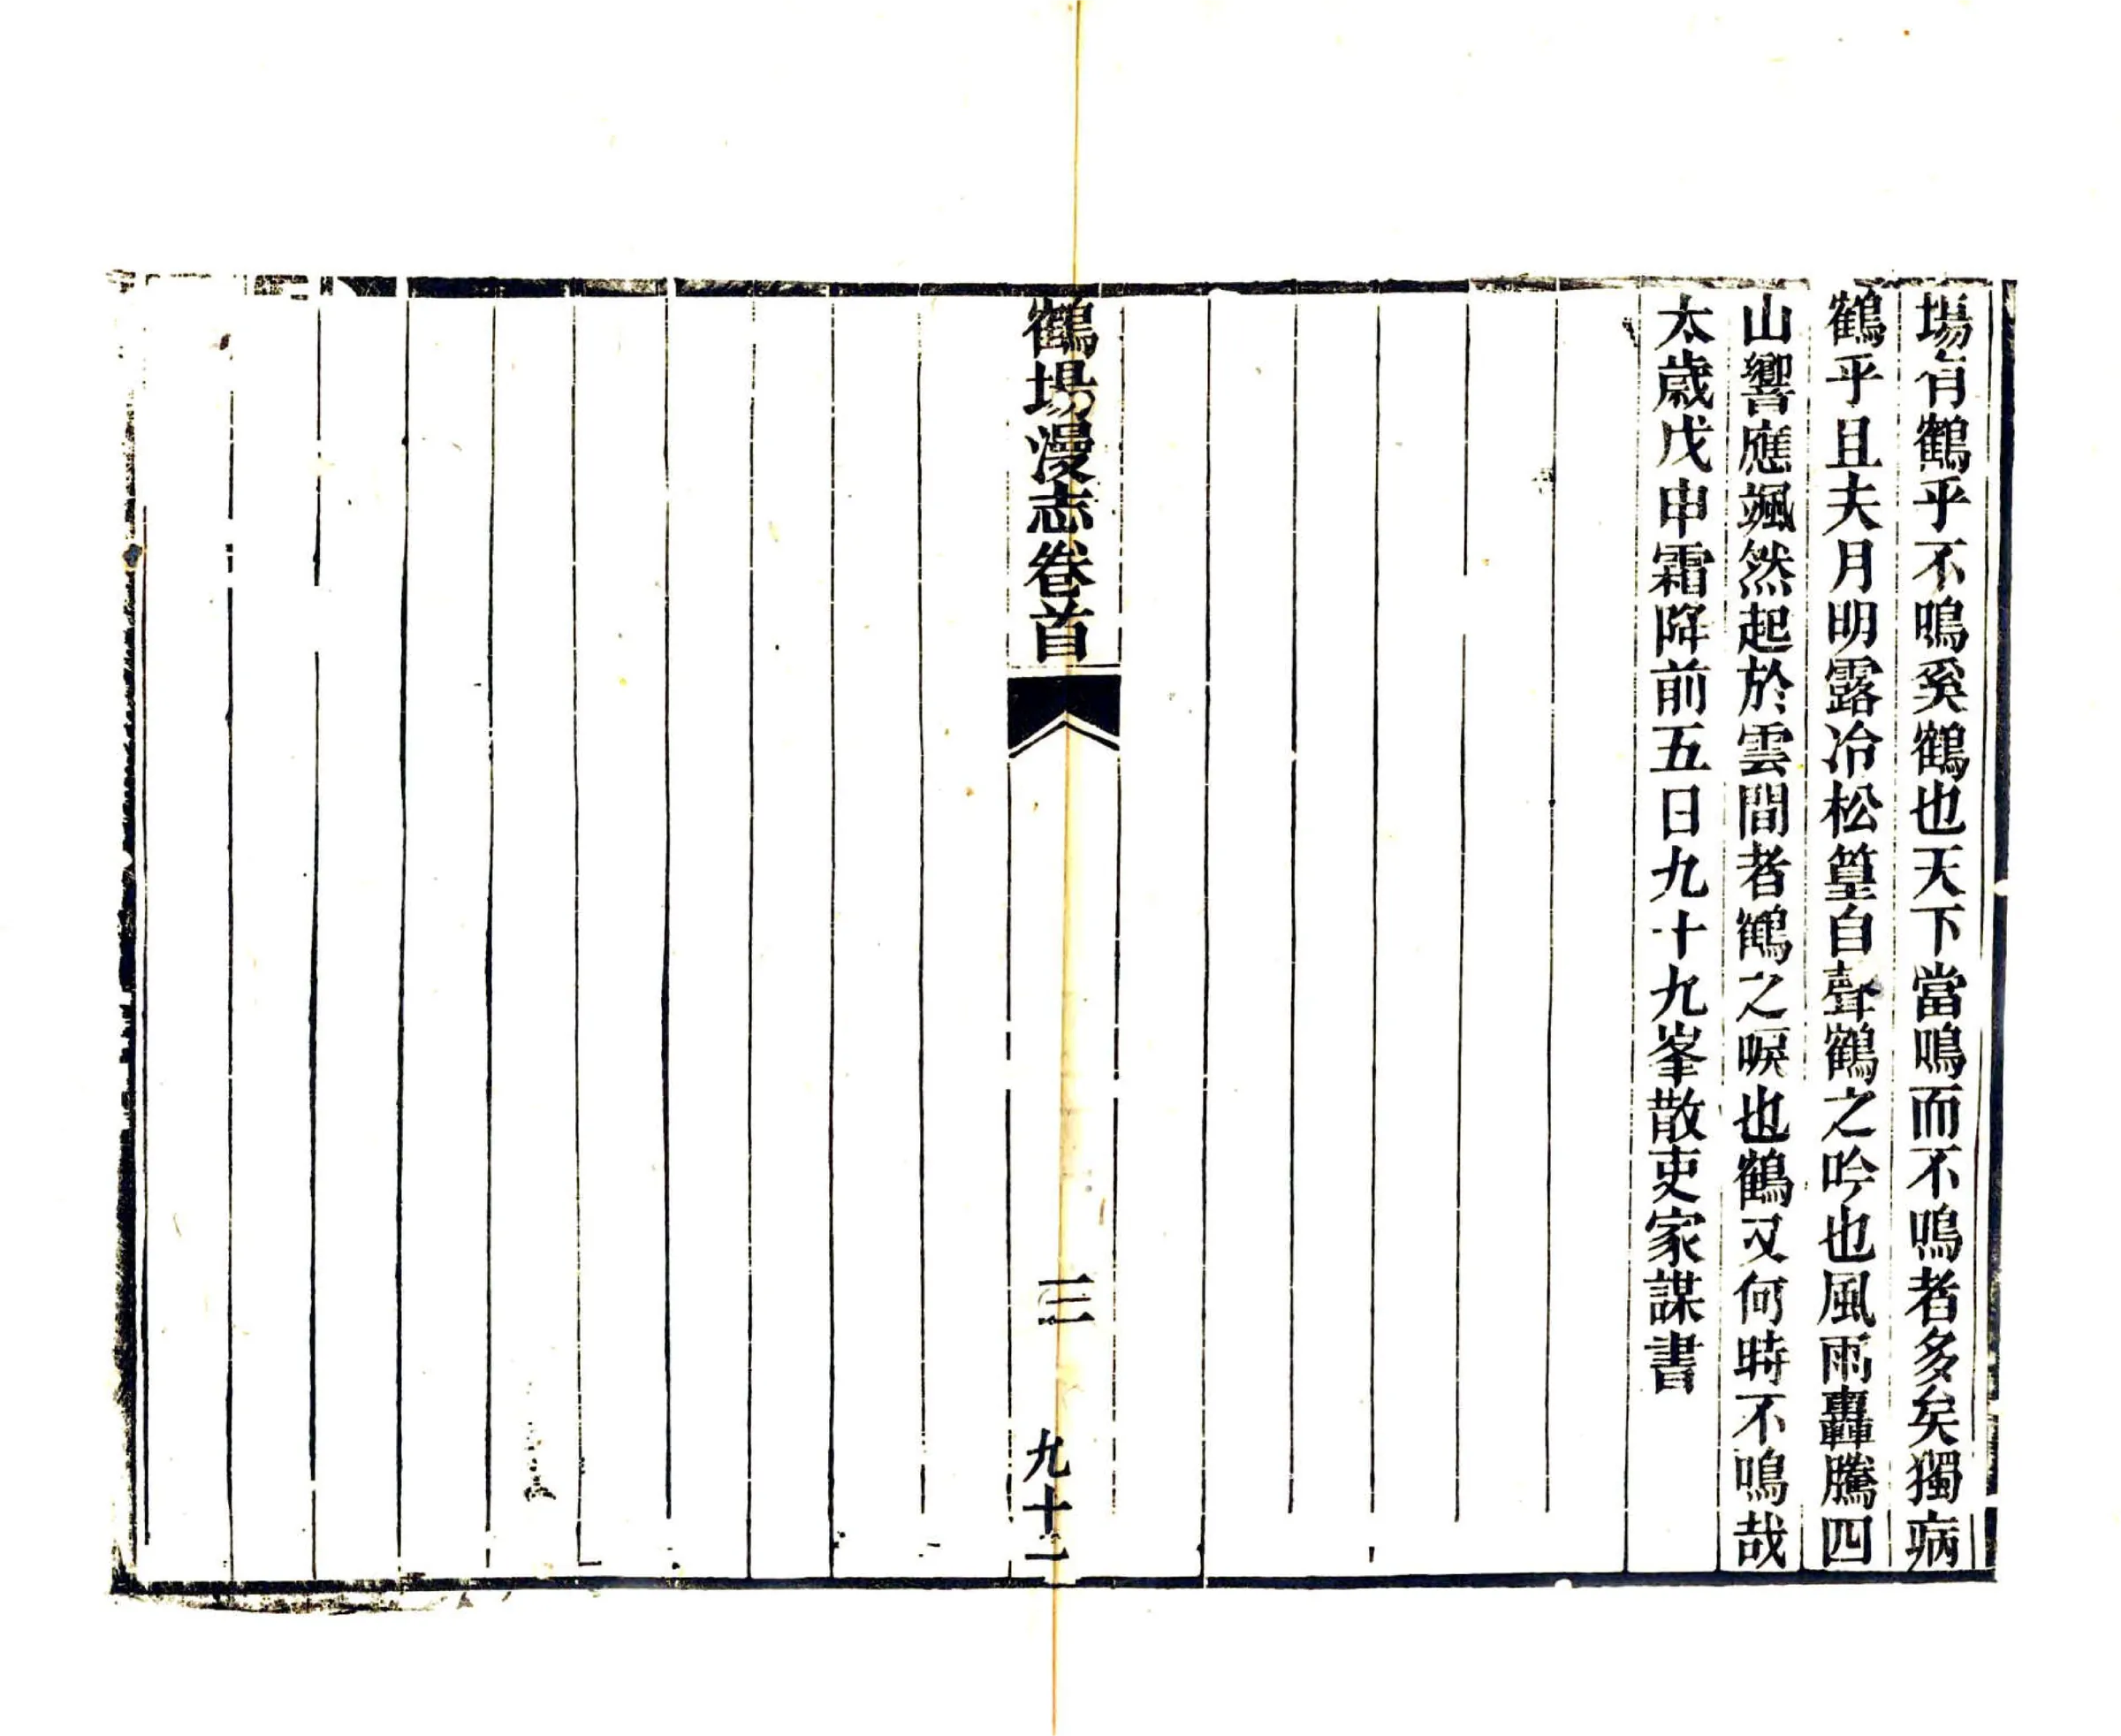 場有鶴乎不鳴奚鶴也天下當鳴而不鳴者多矣獨病
鶴乎且夫月明露冷松篁自聲鶴之吟也風雨轟騰四
山響應颯然起於雲間者鶴之唳也鶴又何時不鳴哉
太歲戊申霜降前五日九十九峯散吏家謀書
鶴場漫志卷首
三
九十二